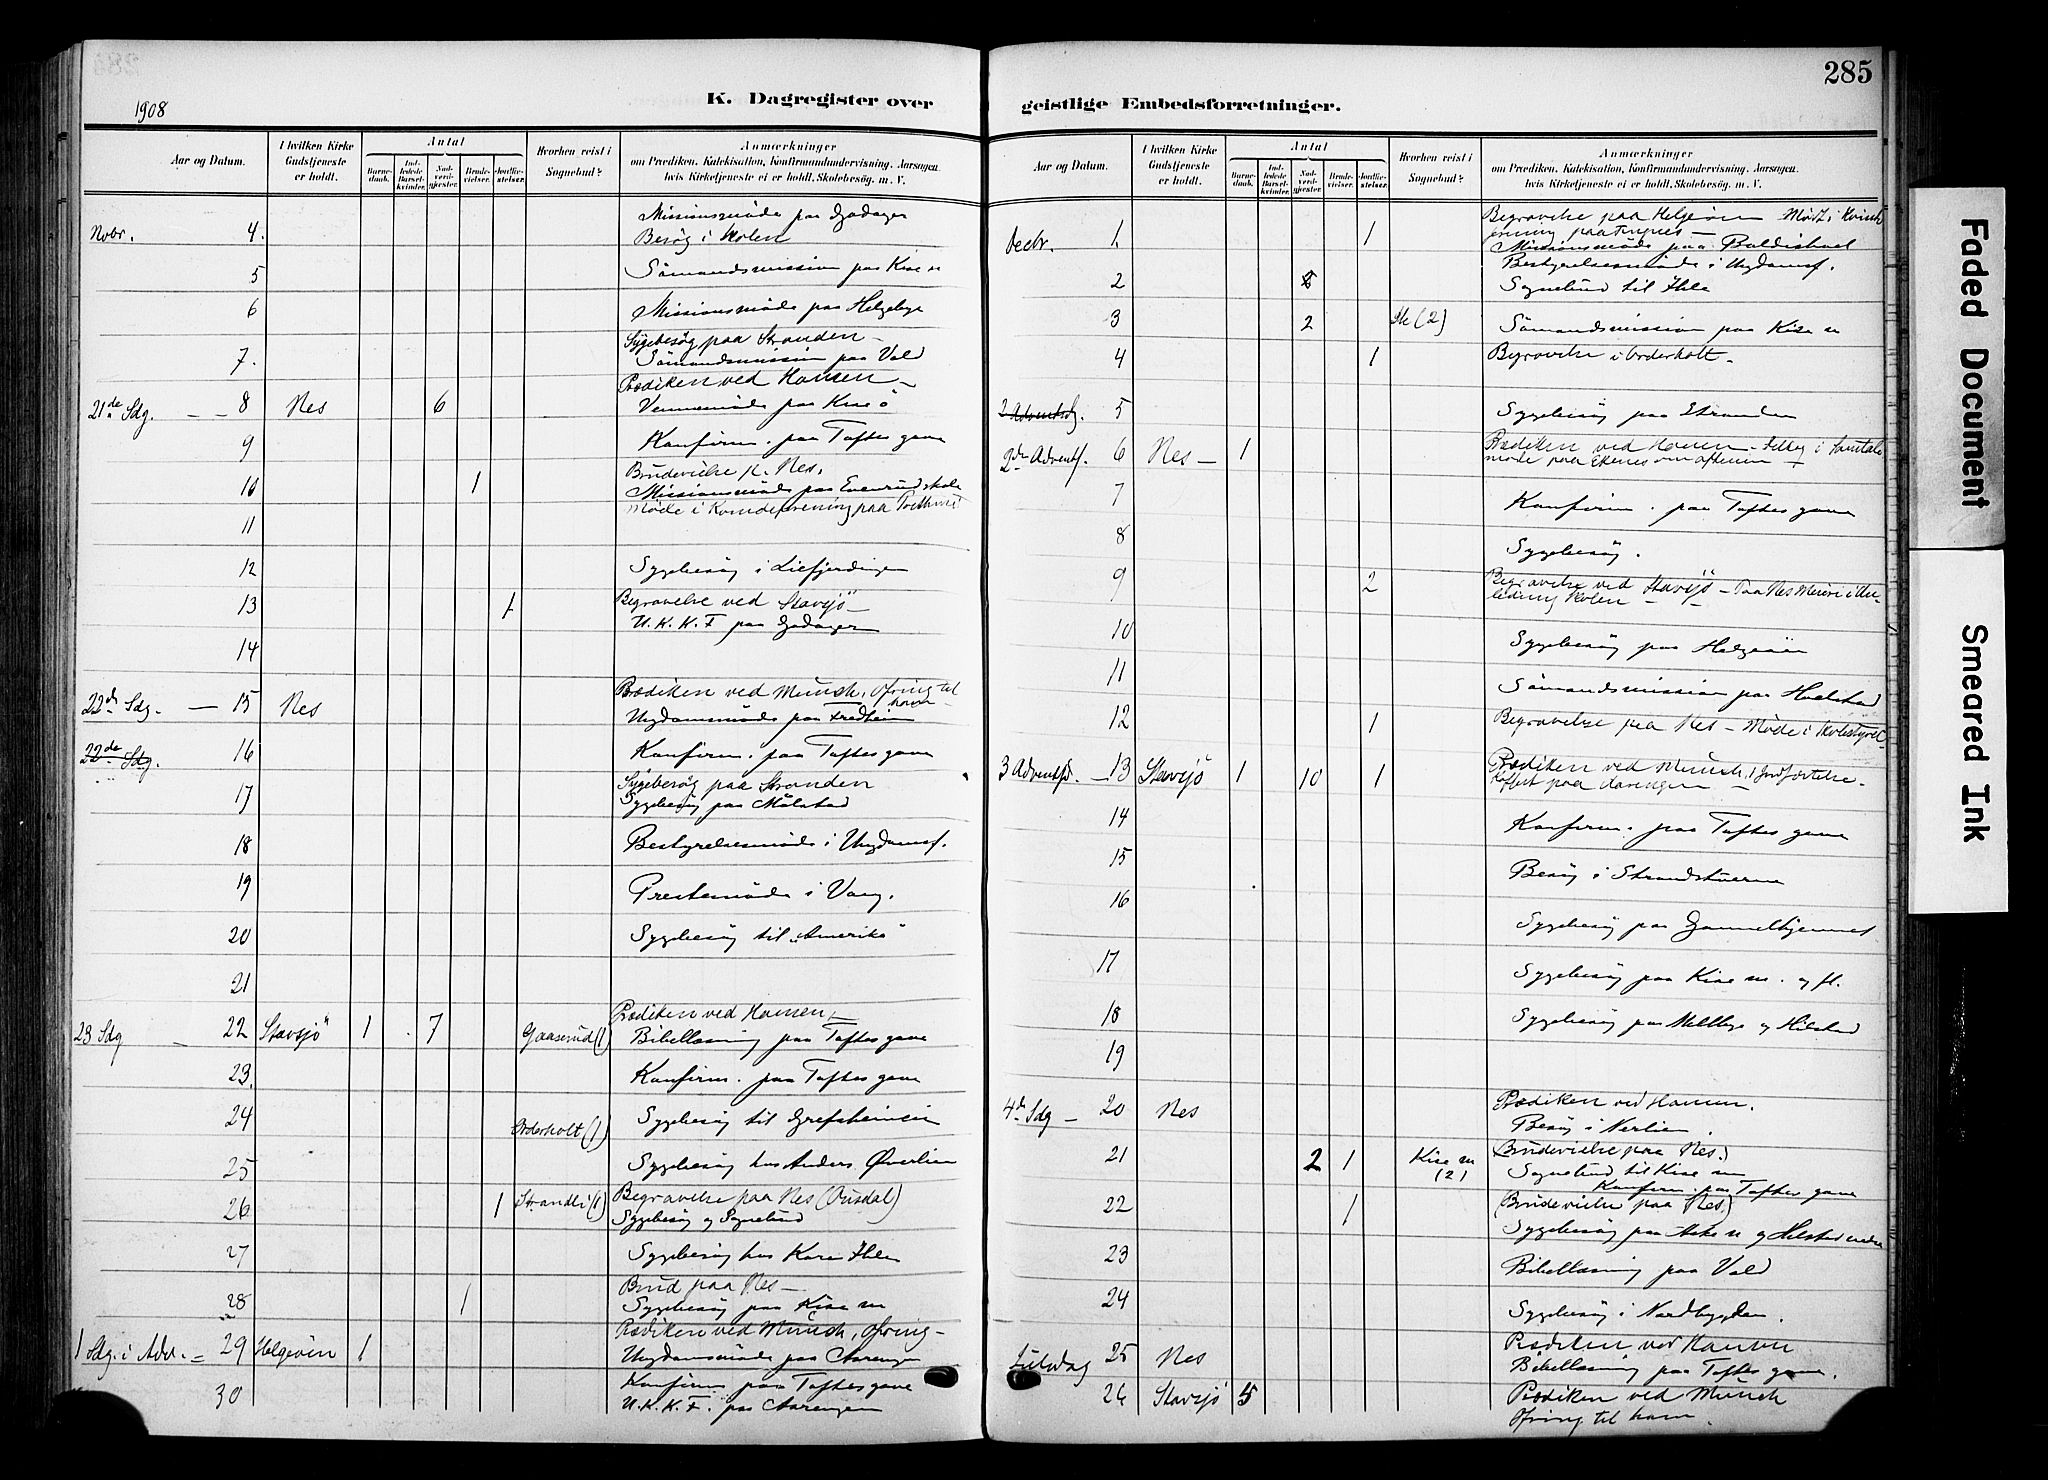 285
1908
K. Dagregister over
geistlige Embedsforretninger.
Aar og Datum.
I hvilken Kirke Gudstjeneste er holdt.
Antal
Barnedaab.
Indledede Barselkvinder.
Nadverdgjester.
Brudevielser.
Jordfæstelser.
Hvorhen reist i Sognebud?
Anmærkninger
om Prædiken, Katekisation, Konfirmandundervisning, Aarsagen,
hvis Kirketjeneste ei er holdt, Skolebesøg. m. V.
Novbr. 4. Missionsmøde paa
Besøg i Skolen
5 Sömandsmission paa Kise n
6 Missionsmøde paa Helgeby
7. Sygebesøg paa Stranden -
Sömandsmission paa Vold
21de Sdg. - - 8 Nes 6 Prædiken ved Hansen -
Vennemøde paa Kise ö
9 Konfirm. paa Toftes gave
10 1 Brudevielse p. Nes.
Missionsmøde paa Evenrudskole
11 Møde i Kvindeforening paa
12 Sygebesög i Liefjerdingen
13 1 Begravelse ved Stavsjö -
U.K.K.F paa
14
22de Sdg. - 15 Nes Prædiken ved Munch, Ofring til ham
Ungdomsmøde paa Fredheim
22de Sdg. 16 Konfirm. paa Toftes gave
17 Sygebesøg paa Stranden
Sygebesög paa Mölstad
18 Bestyrelsesmøde i Ungdomsf.
19 Prestemøde i Vang.
20 Sygebesög til "Amerika"
21
23 Sdg - 22 Stavsjö 1 7 Gaaserud (1) Prædiken ved Hansen -
Bibellæsning paa Toftes gave
23. Konfirm. paa Toftes gave
24 Orderholt (1) Sygebesög til Grefsheim
25 Sygebesög hos Anders Överlien
26 1 Strandli (1) Begravelse paa Nes (Dusdal)
Sygebesög og Sognebud
27 Sygebesög hos Kari Ihle
28 1 Brud paa Nes -
Sygebesög paa Kise n
1 Sdg. i Adv. - 29 Helgøen 1 Prædiken ved Munch, Ofring -
Ungdomsmøde paa Aarengen
30 Konfirm paa Toftes gave
U.K.K.F. paa Aarengen
Aar og Datum.
I hvilken Kirke Gudstjeneste er holdt.
Antal
Barnedaab.
Indledede Barselkvinder.
Nadverdgjester.
Brudevielser.
Jordfæstelser.
Hvorhen reist i Sognebud?
Anmærkninger
om Prædiken, Katekisation, Konfirmandundervisning, Aarsagen,
hvis Kirketjeneste ei er holdt, Skolebesøg. m. V.
Decbr. 1. 1 Begravelse paa Helgøen Møde i Kvinde
forening paa Tingnes -
Missionsmøde paa Baldishol
2 Bestyrelsesmøde i Ungdomsf.
Sognebud til Ihle
3 2 (2) Sömandsmission paa Kise n
4 1 Begravelse i Orderholt -
2 Adventsdg. 5 Sygebesög paa Stranden
2de Adventss. 6 Nes - 1 Prædiken ved Hansen - Deltog i Samtale
møde paa Ekenes om aftenen -
7 Konfirm. paa Toftes gave
8 Sygebesög.
9 2 Begravelse ved Stavsjö - Paa Nes
ledning Skolen -
10 Sygebesög paa Helgeöen
11 Sömandsmission paa Hoelstad
12 1 Begravelse paa Nes - Møde i Skolestyret -
3 Adventsd. - 13 Stavsjö 1 10 1 Prædiken ved Munch, 1 Jordfæstelse -
paa Aarengen -
14 Konfirm. paa Toftes gave
15 Besög i Strandstuerne
16 Sygebesög paa Gamlehjemmet
17 Sygebesög paa Kise n. og fl.
18 Sygebesög paa Meltbye og Hilstad
19
4de Sdg - 20 Nes Prædiken ved Hansen.
Besög i Nerlien.
21 2 1 Kise n (2) Brudevielse paa Nes.)
Sognebud til Kise n
Konfirm. paa Toftes gave
22 1 (Brudevielse paa Nes.)
Sygebesög paa n og
23 Bibellæsning paa Vold
24 Sygebesög i Nordbygden.
Juledag 25 Nes Prædiken ved Hansen
Bibellæsning paa Toftes gave.
26 Stavsjö 5 Prædiken ved Munch
Ofring til ham.
Faded Document
Smeared Ink